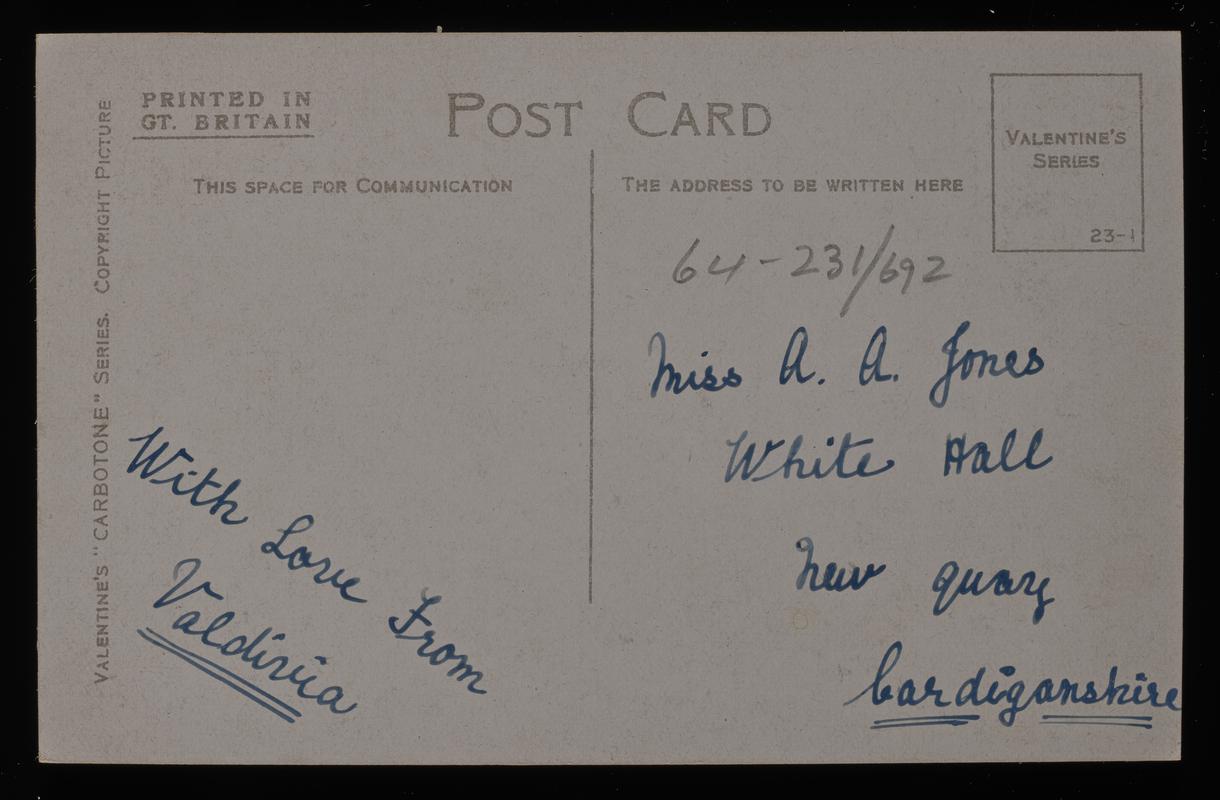 PRINTED IN
GT. BRITAIN
POST CARD
VALENTINE'S
SERIES
23-1
THIS SPACE FOR COMMUNICATION
THE ADDRESS TO BE WRITTEN HERE
VALENTINE'S "CARBOTONE" SERIES. COPYRIGHT PICTURE
With Love From
Valdivia
64-231/692
Miss A. A. Jones
White Hall
New quay
Cardiganshire